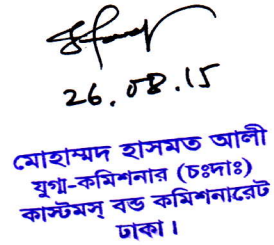 26.08.15
মোহাম্মদ হাসমত আলী
যুগ্ম-কমিশনার (চঃদাঃ)
কাস্টমস্ বন্ড কমিশনারেট
ঢাকা।